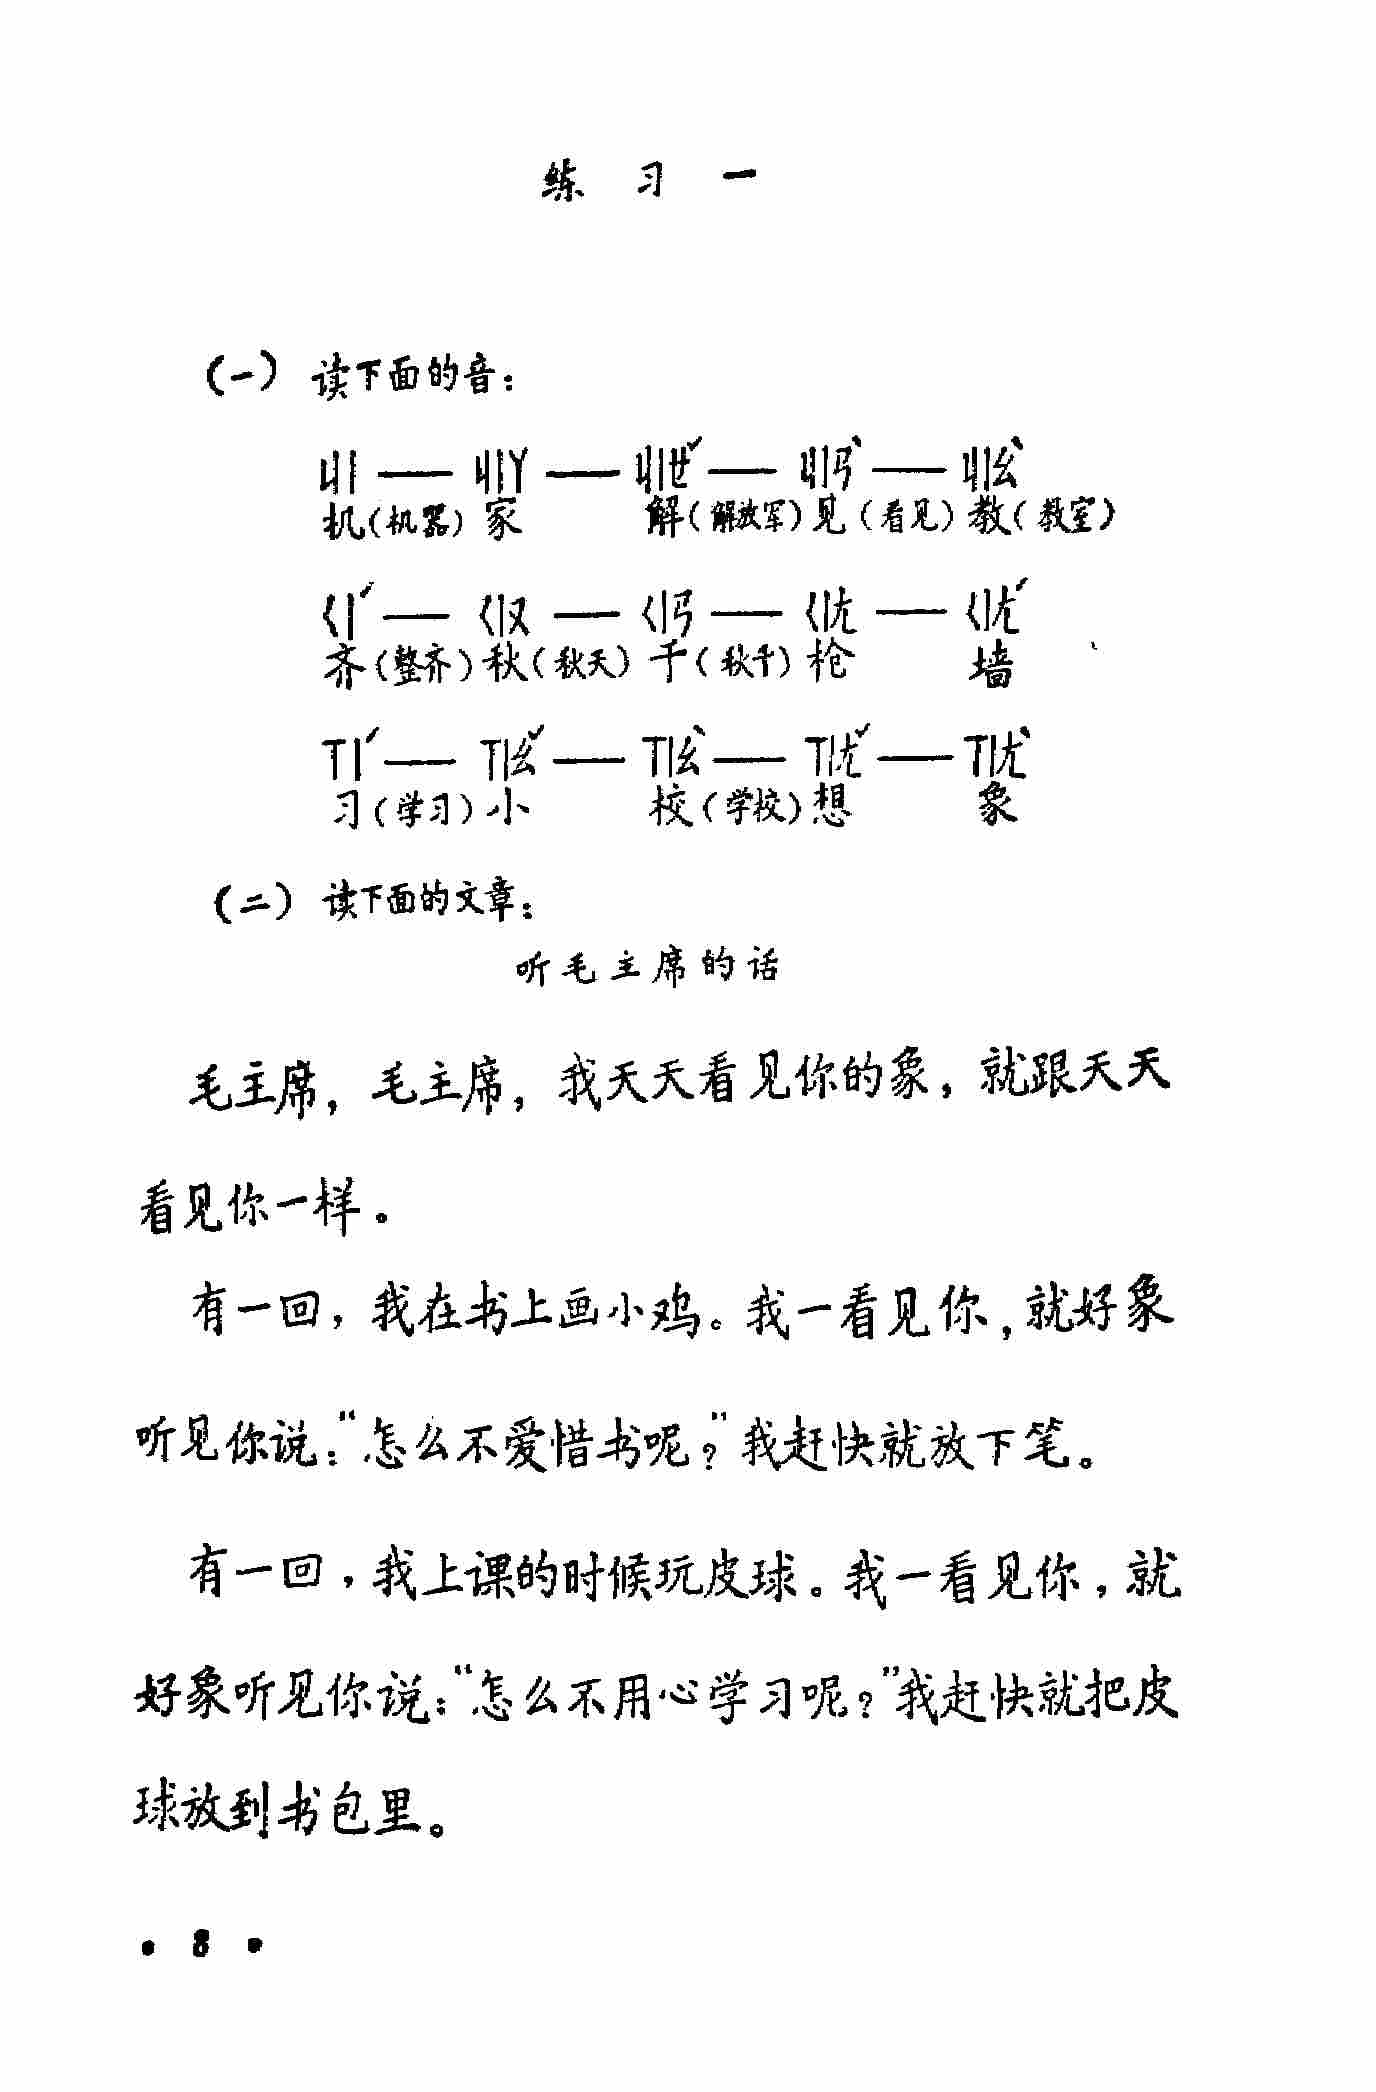 练 习 一
(一) 读下面的音：
ㄐㄧ —— ㄐㄧㄚ —— ㄐㄧㄝˇ —— ㄐㄧㄢˋ —— ㄐㄧㄠˋ
机(机器) 家 解(解放军) 见(看见) 教(教室)
ㄑㄧˊ —— ㄑㄧㄡ —— ㄑㄧㄢ —— ㄑㄧㄤ —— ㄑㄧㄤˊ
齐(整齐) 秋(秋天) 千(秋千) 枪 墙
ㄒㄧˊ —— ㄒㄧㄠˇ —— ㄒㄧㄠˋ —— ㄒㄧㄤˇ —— ㄒㄧㄤˋ
习(学习) 小 校(学校) 想 象
(二) 读下面的文章：
听毛主席的话
毛主席，毛主席，我天天看见你的象，就跟天天
看见你一样。
有一回，我在书上画小鸡。我一看见你，就好象
听见你说：“怎么不爱惜书呢？”我赶快就放下笔。
有一回，我上课的时候玩皮球。我一看见你，就
好象听见你说：“怎么不用心学习呢？”我赶快就把皮
球放到书包里。
• 8 •